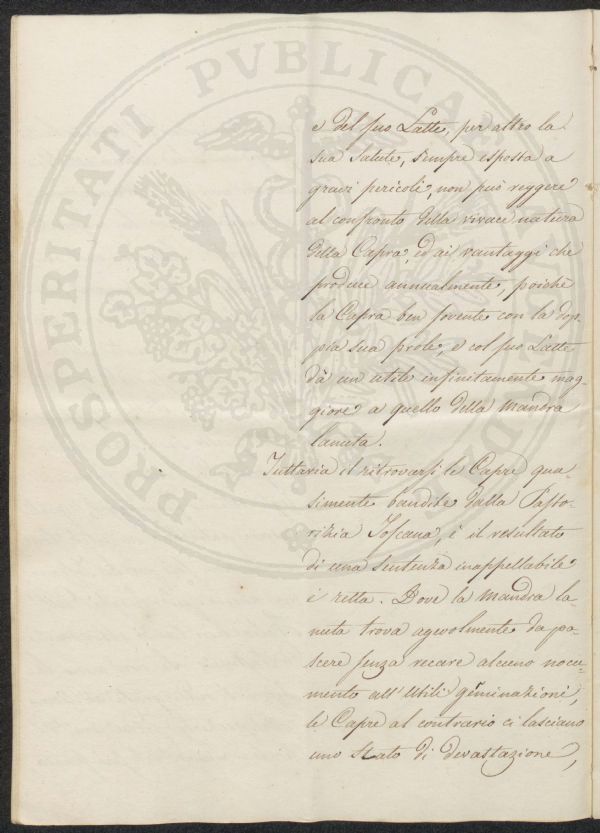 PROSPERITATI PVBLICAE
e del suo Latte, per altro la
sua salute, sempre esposta a
gravi pericoli, non può reggere
al confronto della vivace natura
della Capra, ed ai vantaggi che
produce annualmente, poichè
la Capra ben sovente con la dop-
pia sua prole, e col suo Latte
dà un utile infinitamente mag-
giore a quello della Mandra
lanuta.
Tuttavia il ritrovarsi le Capre qua-
simente bandite dalla Pasto-
rizia Toscana, è il resultato
di una sentenza inappellabile
e retta. Dove la Mandra la-
nuta trova agevolmente da pa-
scere senza recare alcuno nocu-
mento all'Utili geminazioni,
le Capre al contrario ci lasciano
uno stato di devastazione,